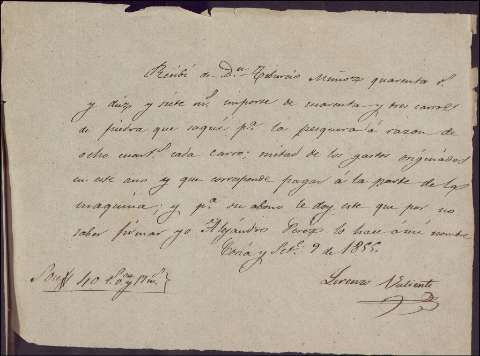 Recibí de Dn. Tiburcio Muñoz quarenta rs.
y diez y siete ms. importe de cuarenta y tres carros
de piedra que saqué pa. la pesquera á razon de
ocho cuarts. cada carro; mitad de los gastos originados
en este ano y que corresponde pagar á la parte de la
maquina; y pa. su abono le doy este que por no
saber firmar yo Alejandro Perez lo hace á mi nombre
Soria y Set. 9 de 1855.
Son 40 rs. y 17 ms.
Lorenzo Valiente